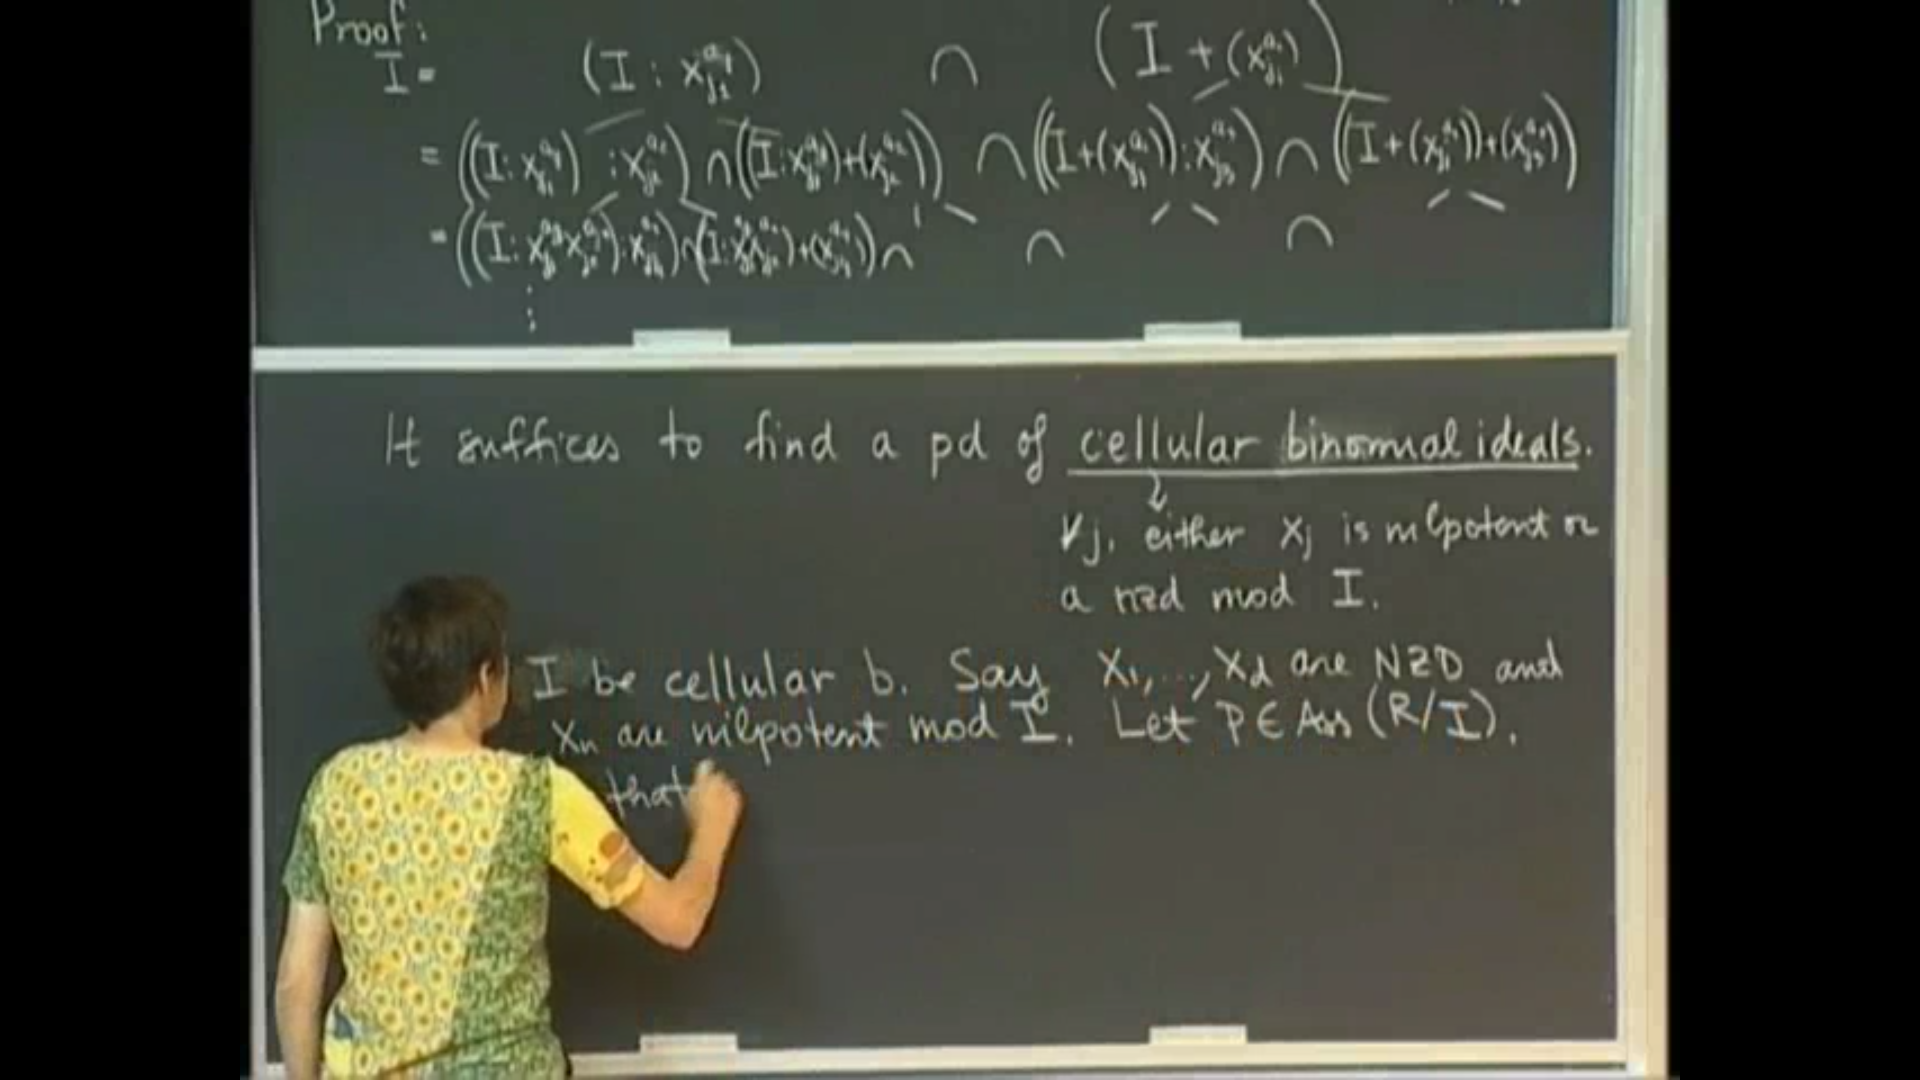 Proof:
I = (I : x_{j_1}^{a_1}) ∩ (I + (x_{j_1}^{a_1}))
= ((I : x_{j_1}^{a_1}) : x_{j_2}^{a_2}) ∩ ((I : x_{j_1}^{a_1}) + (x_{j_2}^{a_2})) ∩ ((I + (x_{j_1}^{a_1})) : x_{j_3}^{a_3}) ∩ ((I + (x_{j_1}^{a_1})) + (x_{j_3}^{a_3}))
= ∩ ∩ ∩ ∩
⋮
It suffices to find a pd of cellular binomial ideals.
∀j, either x_j is nilpotent or
a nzd mod I.
I be cellular b. Say x_1, ..., x_d are NZD and
x_n are nilpotent mod I. Let P ∈ Ass (R/I).
that